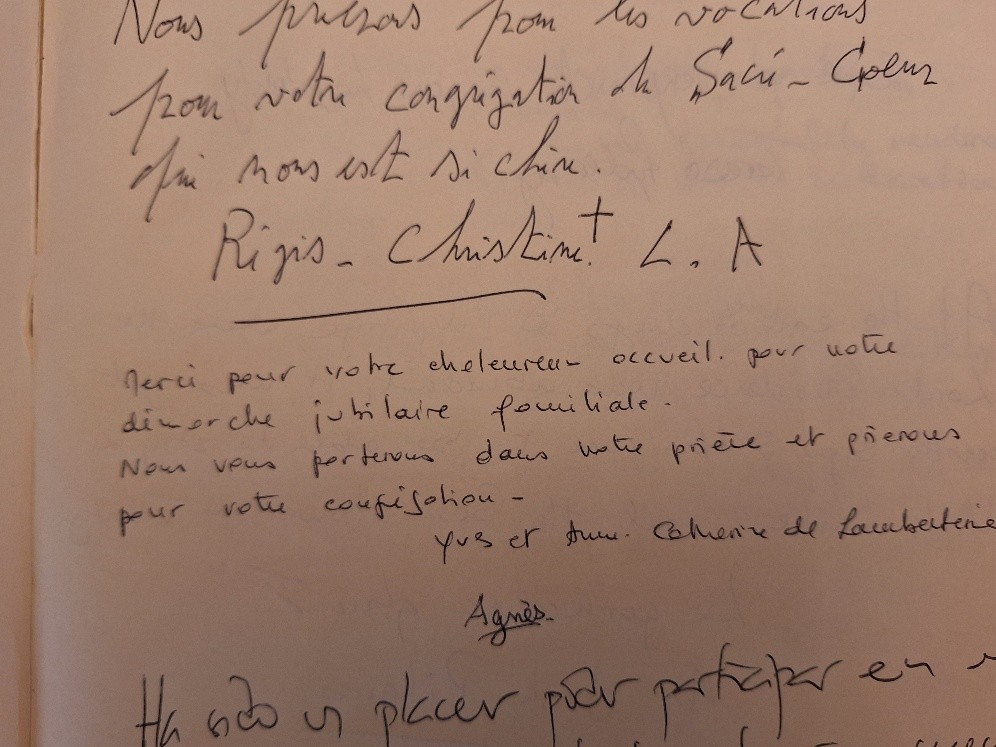 Nous prions pour les vocations
pour votre congrégation du Sacré-Coeur
qui nous est si chère.
Régis - Christine + L. A
Merci pour votre chaleureux accueil. pour notre
démarche jubilaire familiale.
Nous vous porterons dans notre prière et prierons
pour votre congrégation -
Yves et Anne. Catherine de Lamberterie
Agnès.
Ha sido un placer poder participar en